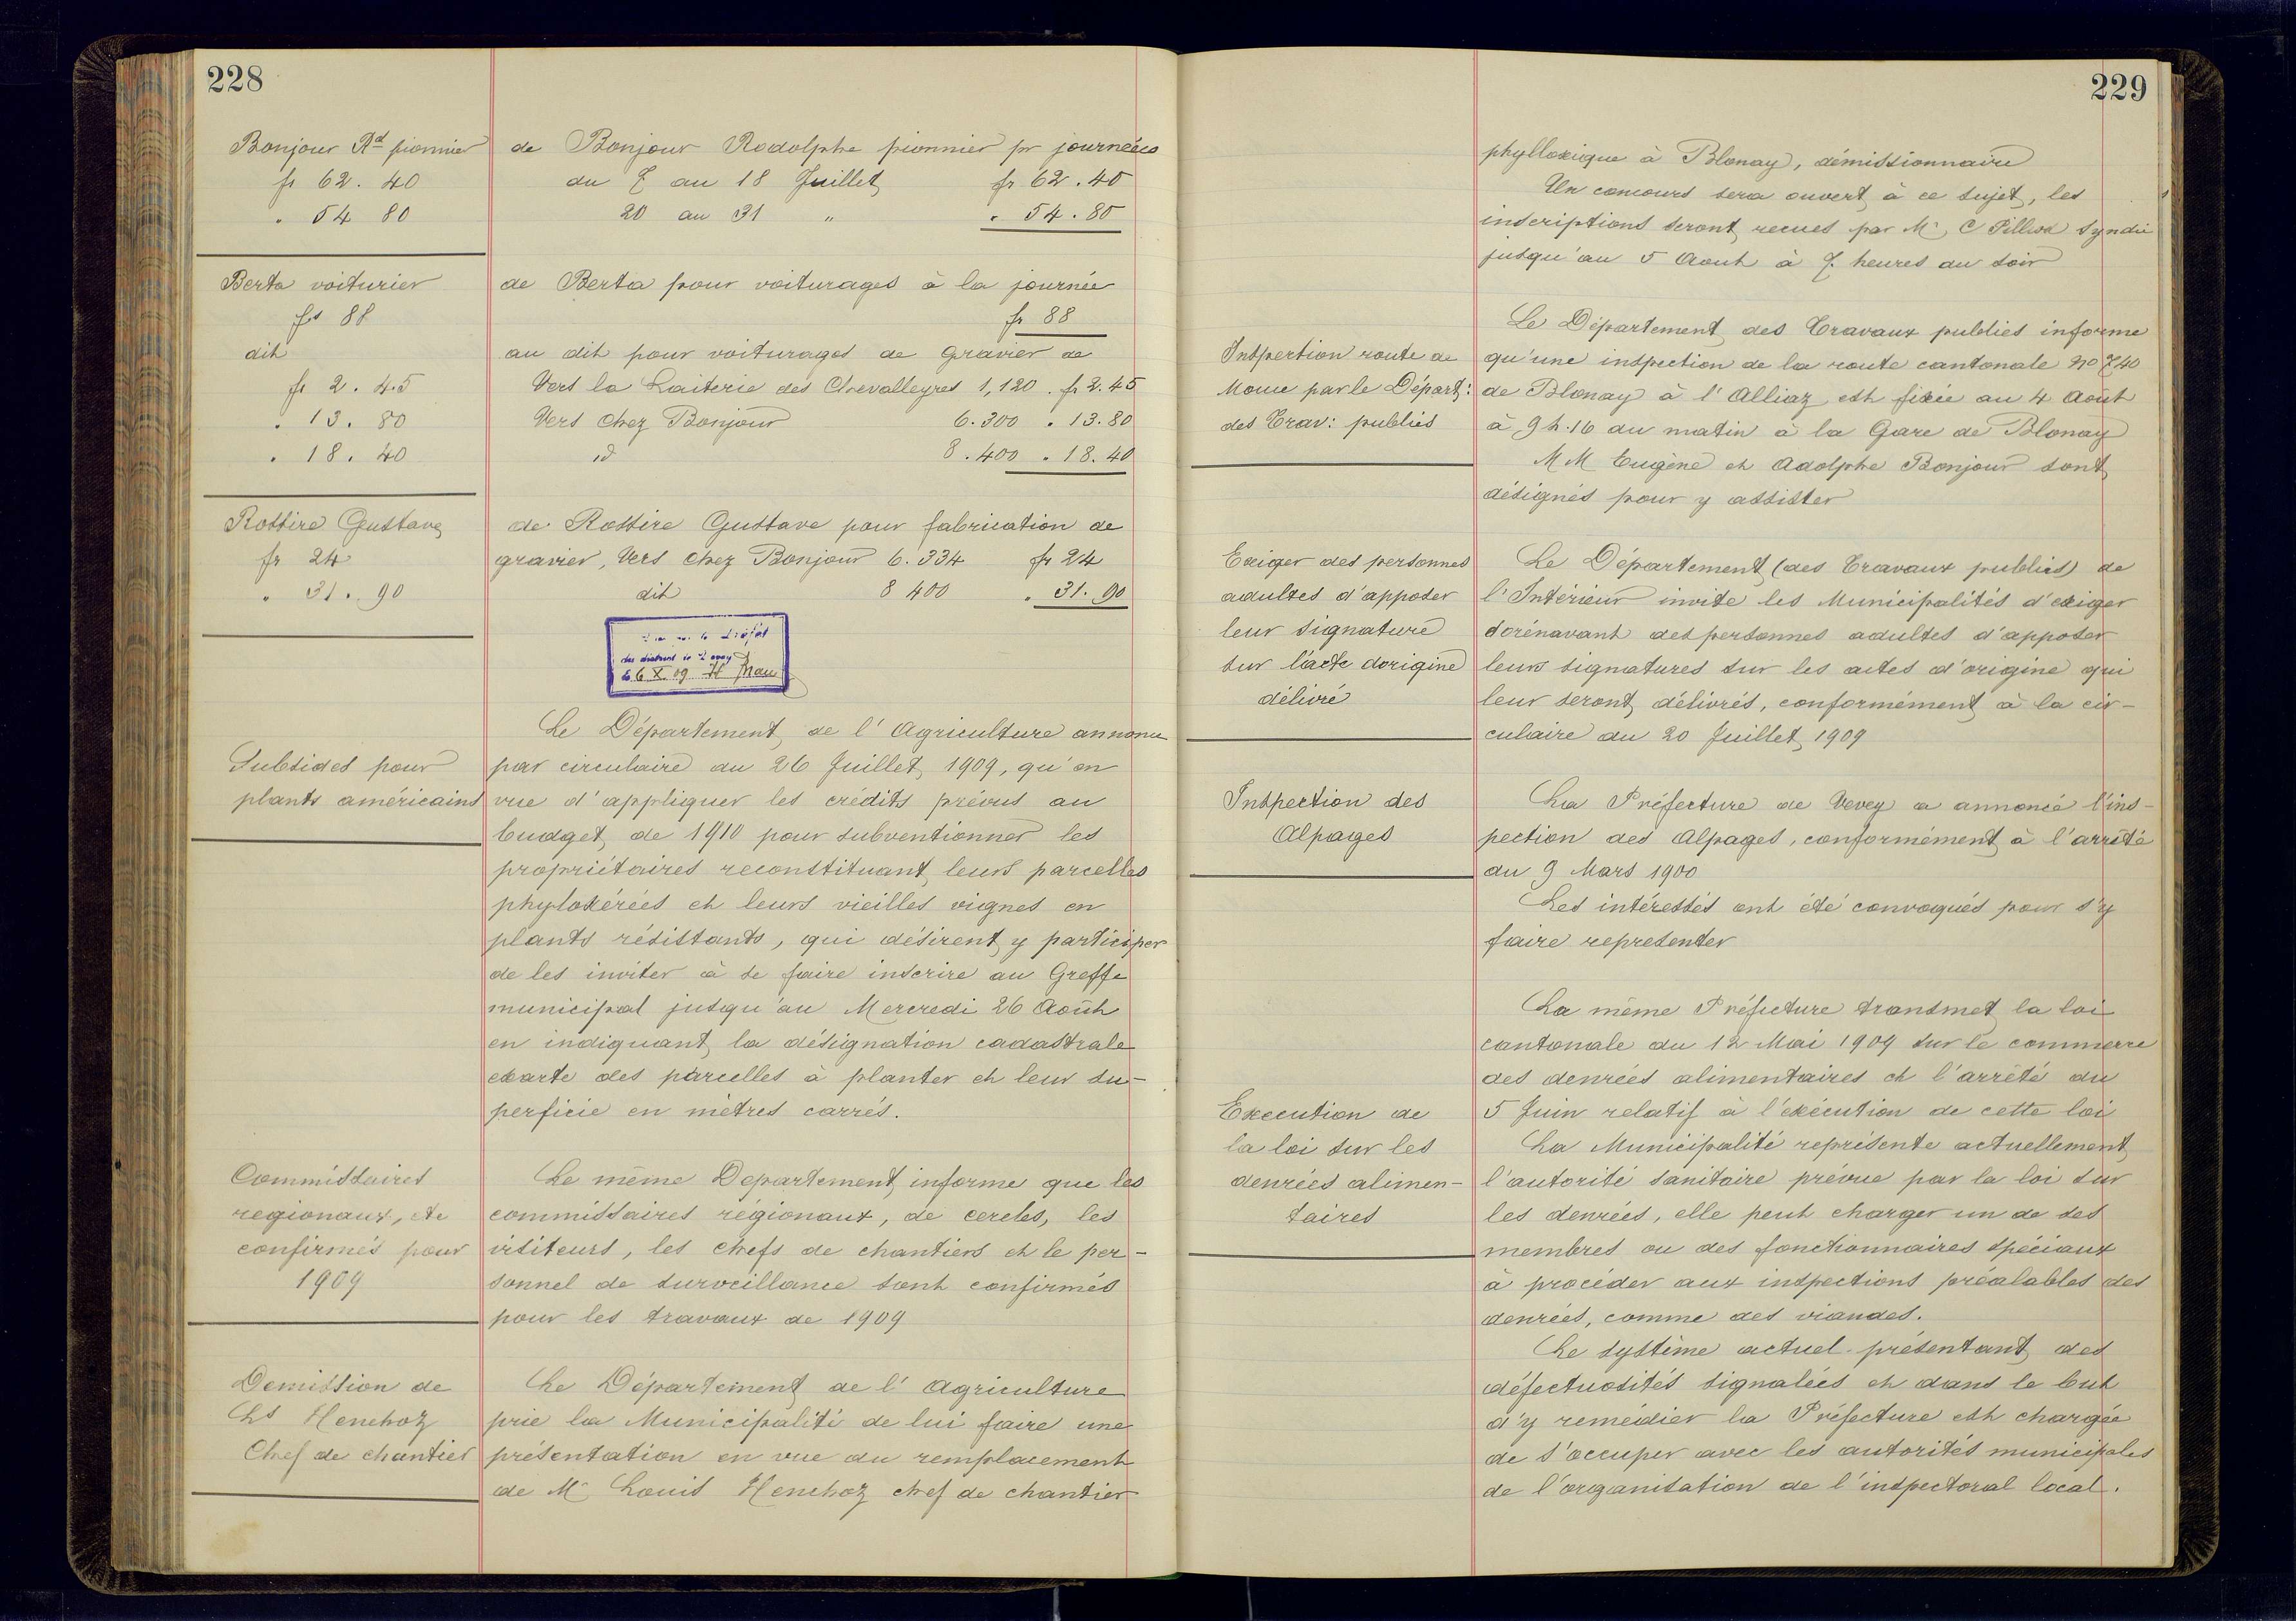 228
Bonjour Rd pionnier
fr 62. 40
" 54 80
de Bonjour Rodolphe pionnier pr journéees
du 7 au 18 Juillet fr 62.40
20 au 31 " " 54.80
Berta voiturier
frs 88
dit
fr 2. 45
" 13. 80
" 18. 40
de Berta pour voiturages à la journée
fr 88
au dit pour voiturages de gravier de
Vers la Laiterie des Chevalleyres 1,120 . fr 2.45
Vers chez Bonjour 6.300 " 13.80
id 8.400 " 18.40
Rossire Gustave
fr 24
" 31. 90
de Rossire Gustave pour fabrication de
gravier, Vers chez Bonjour 6.334 fr 24
dit 8 400 " 31.90
Préfet
du district de Vevey
6 X 09
Subsides pour
plants américains
Le Département de l'Agriculture annonce
par circulaire du 26 Juillet 1909, qu'en
vue d'appliquer les crédits prévus au
budget de 1910 pour subventionner les
propriétaires reconstituant leurs parcelles
phyloxérées et leurs vieilles vignes en
plants résistants, qui désirent y participer
de les inviter à se faire inscrire au Greffe
municipal jusqu'au Mercredi 26 Août
en indiquant la désignation cadastrale
exacte des parcelles à planter et leur su-
perficie en mètres carrés.
Commissaires
regionaux, etc
confirmés pour
1909
Le même Departement informe que les
commissaires régionaux, de cercles, les
visiteurs, les chefs de chantiers et le per-
sonnel de surveillance sont confirmés
pour les travaux de 1909
Demission de
Ls Henchoz
Chef de chantier
Le Département de l'Agriculture
prie la Municipalité de lui faire une
présentation en vue du remplacement
de Mr Louis Henchoz chef de chantier
229
phylloxique à Blonay, démissionnaire
Un concours sera ouvert à ce sujet, les
inscriptions seront recues par Mr C Pilliod Syndic
jusqu'au 5 Aout à 7 heures du soir
Inspertion route de
Mouce par le Départ:
des Trav: publics
Le Département des Travaux publics informe
qu'une inspection de la route cantonale no 740
de Blonay à l'Alliaz est fixée au 4 Août
à 9 h.16 du matin à la Gare de Blonay
M M Eugène et Adolphe Bonjour sont
désignés pour y assister
Exiger des personnes
adultes d'apposer
leur signature
sur l'acte dorigine
délivré
Le Département (des Travaux publics) de
l'Intérieur invite les Municipalités d'exiger
dorénavant des personnes adultes d'apposer
leurs signatures sur les actes d'origine qui
leur seront délivrés, conformément à la cir-
culaire du 20 Juillet 1909
Inspection des
Alpages
La Préfecture de Vevey a annoncé l'ins-
pection des Alpages, conformément à l'arrêté
du 9 Mars 1900
Les intéressés ont été convoqués pour s'y
faire representer
Execution de
la loi sur les
denrées alimen-
taires
La même Préfecture transmet la loi
cantonale du 12 Mai 1909 sur le commerce
des denrées alimentaires et l'arrêté du
5 Juin relatif à l'exécution de cette loi
La Municipalité représente actuellement
l'autorité sanitaire prévue par la loi sur
les denrées, elle peut charger un de ses
membres ou des fonctionnaires spéciaux
à procéder aux inspections préalables des
denrées, comme des viandes.
Le système actuel présentant des
défectuosités signalées et dans le but
d'y remédier la Préfecture est chargée
de s'occuper avec les autorités municipales
de l'organisation de l'inspectorat local.